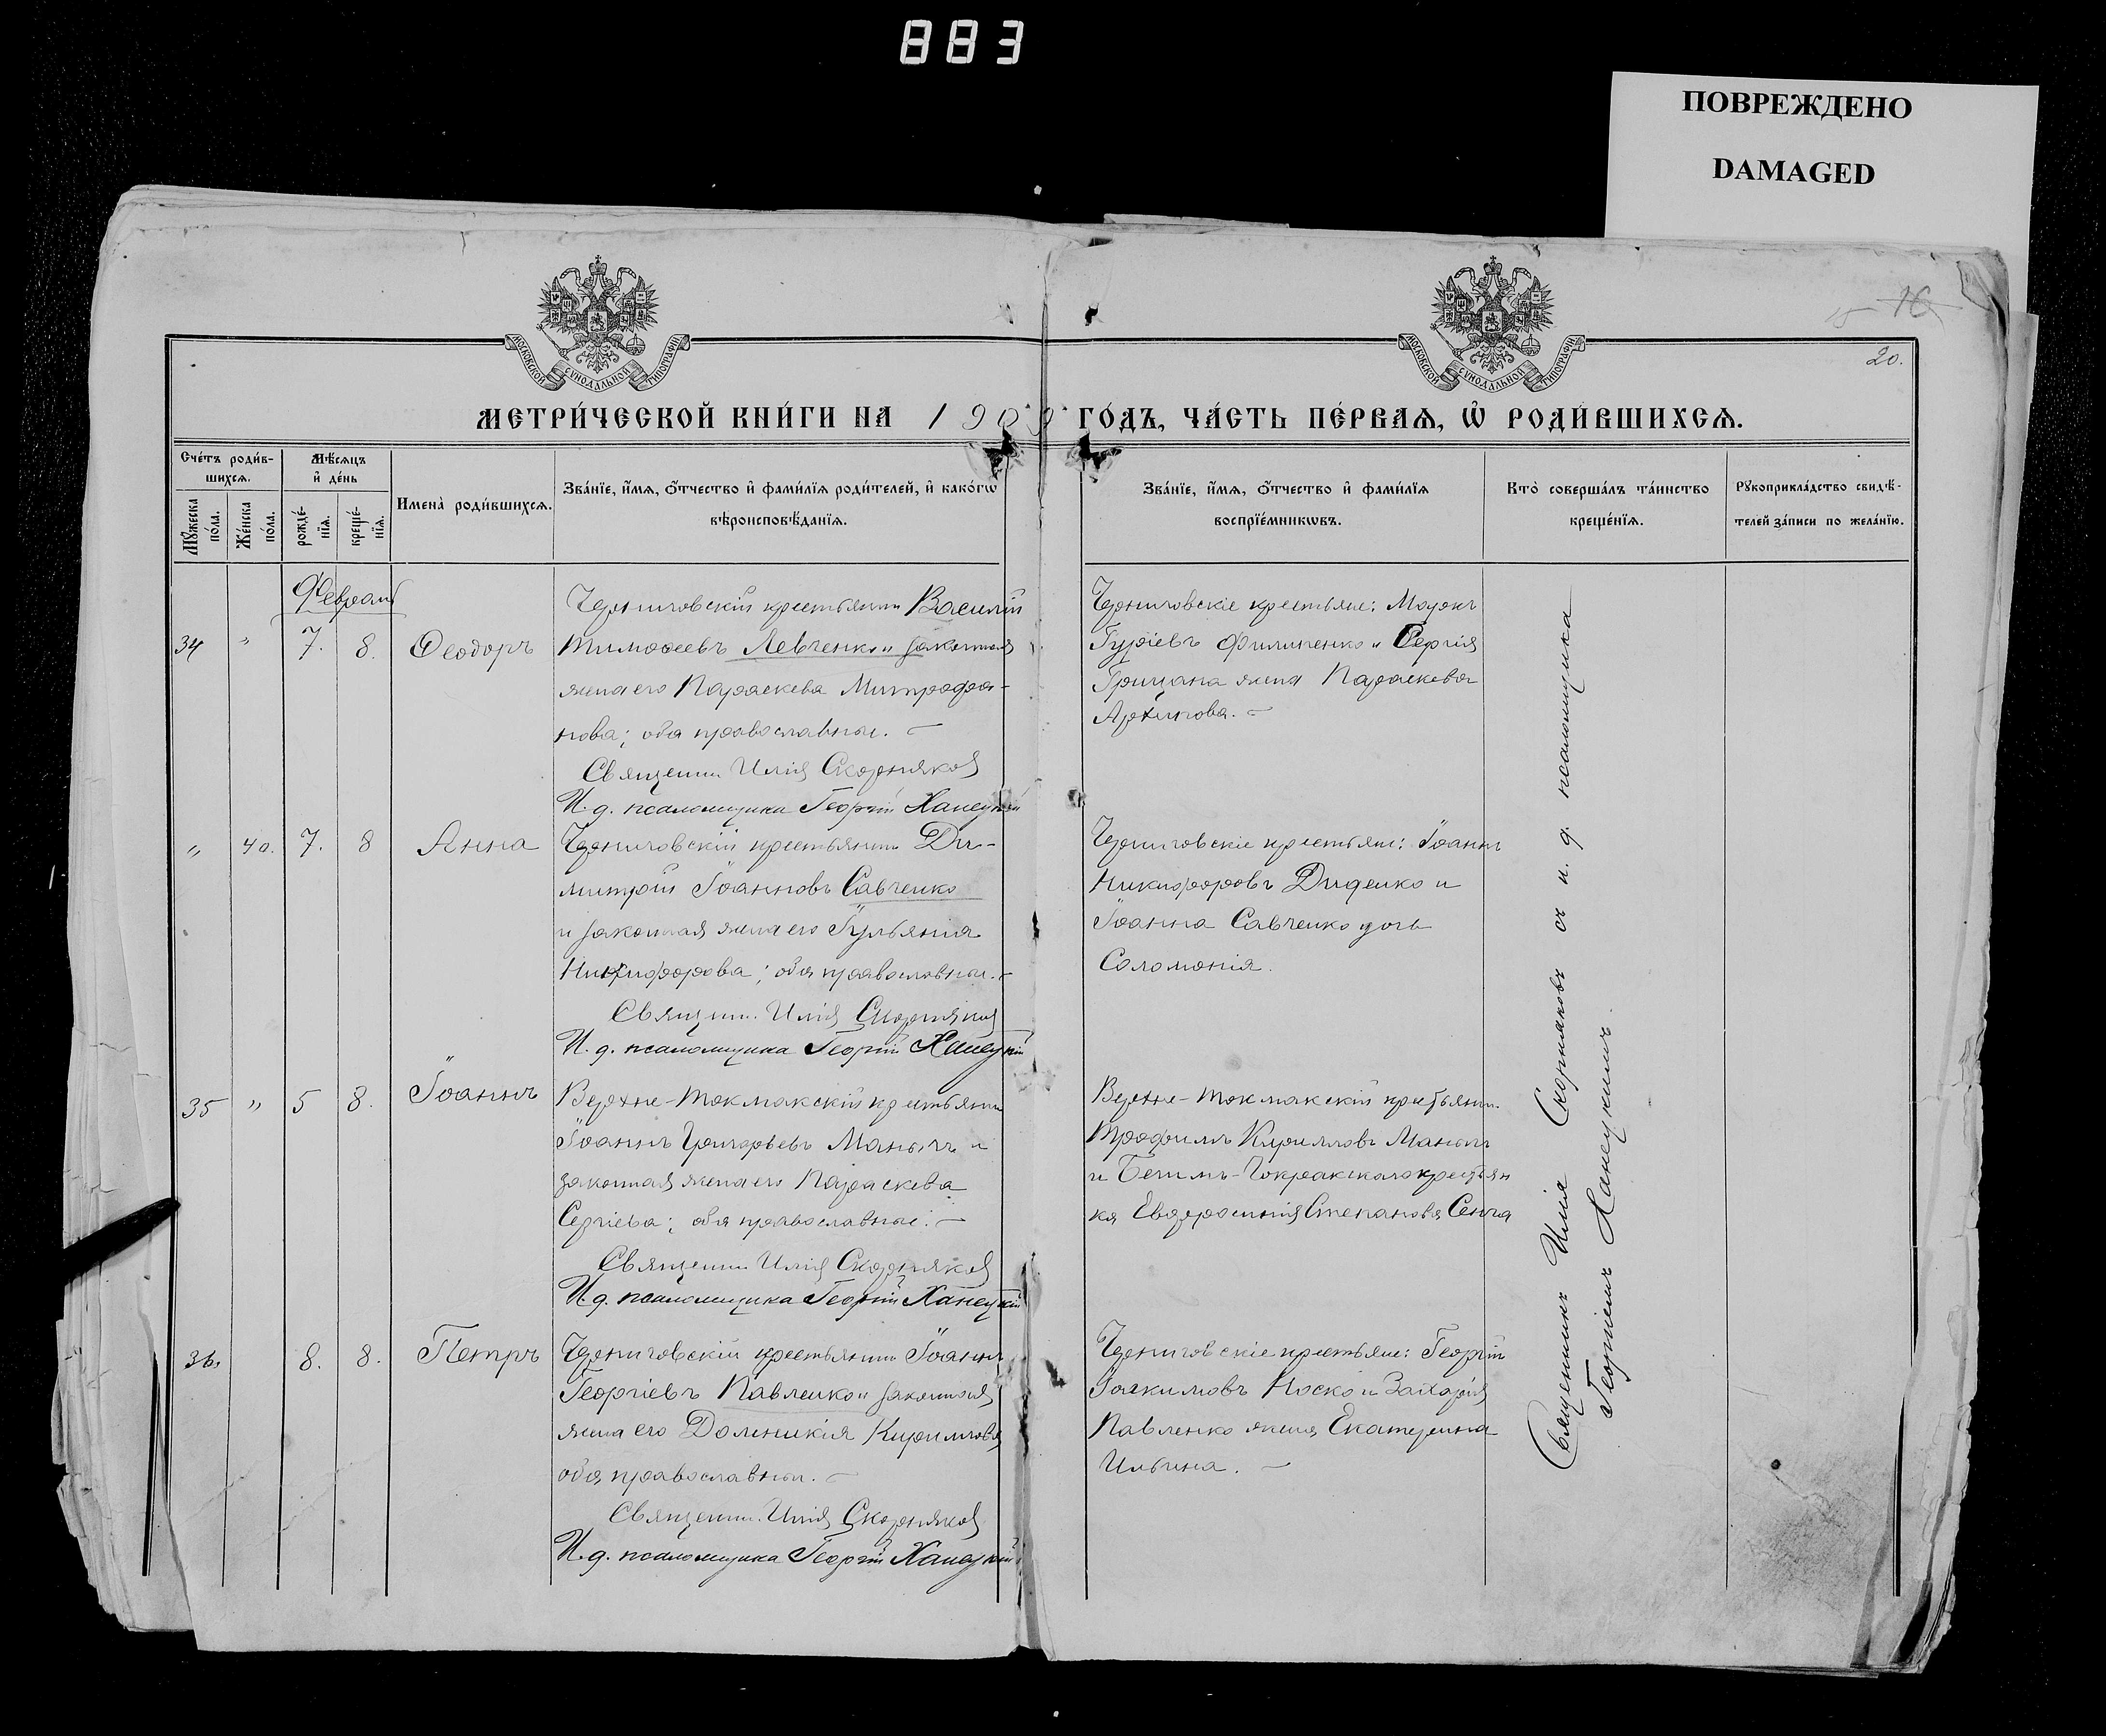 883
ПОВРЕЖДЕНО
DAMAGED
МОСКОВСКОЙ СУНОДАЛЬНОЙ ТИПОГРАФІИ
МОСКОВСКОЙ СУНОДАЛЬНОЙ ТИПОГРАФІИ
15 16
20.
МЕТРИ́ЧЕСКОЙ КНИ́ГИ НА 190
ГО́ДЪ, ЧА́СТЬ ПЕ́РВАѦ, Ѽ РОДИ́ВШИХСѦ.
Сче́тъ роди́в-
шихсѧ.
Мꙋ́жеска по́ла.
Же́нска по́ла.
Мѣ́сѧцъ
и҆ де́нь
рожде́-
нїѧ.
креще́-
нїѧ.
Имена̀ роди́вшихсѧ.
Зва́нїе, и҆́мѧ, ѻ҆́тчество и҆ фами́лїѧ роди́телей, и҆ како́гѡ
вѣроисповѣ́данїѧ.
Зва́нїе, и҆́мѧ, ѻ҆́тчество и҆ фами́лїѧ
воспрїе́мникѡвъ.
Кто̀ соверша́лъ та́инство
креще́нїѧ.
Рꙋкоприкла́дство свидѣ́-
телей за́писи по жела́нїю.
Февраль
34 " 7. 8. Ѳеодоръ
Черниговскій крестьянинъ Василій
Тимоѳеевъ Левченко и законная
жена его Параскева Митрофа-
нова; оба православные. —
Священник Илія Скорняков
И. д. псаломщика Георгій Ханецкій
Черниговскіе крестьяне:
Гуріевъ Филипенко и Сергія
Грицана жена Параскева
Архипова. —
" 40. 7. 8 Анна
Черниговскій крестьянинъ Ди-
митрій Іоанновъ Савченко
и законная жена его Іуліанія
Никифорова; оба православные. —
Священ. Илія Скорняков
И. д. псаломщика Георгій Ханецкій
Черниговскіе крестьяне: Іоаннъ
Никифоровъ Диденко и
Іоанна Савченко дочь
Соломонія.
35 " 5 8. Іоаннъ
Верхне-Токмакскій крестьянин
Іоаннъ Григорьевъ Манычъ и
законная жена его Параскева
Сергіева; оба православные. —
Священник Илія Скорняков
И. д. псаломщика Георгій Ханецкій
Верхне-Токмакскій крестьянин.
Трофимъ Кирилловъ Манычъ
и Бегимъ-Чокракская крестьян
ка Евфросинія Степанова Сенча
36. 8. 8. Петръ
Черниговскій крестьянинъ Іоаннъ
Георгіевъ Павленко и законная
жена его Домникія Кириллова
оба православные. —
Священник. Илія Скорняков
И. д. псаломщика Георгій Ханецкій
Черниговскіе крестьяне: Георгій
Іоакимовъ Носко и Захарія
Павленко жена Екатерина
Ильина. —
Священникъ Илія Скорняковъ съ и. д. псаломщика
Георгіемъ Ханецкимъ.